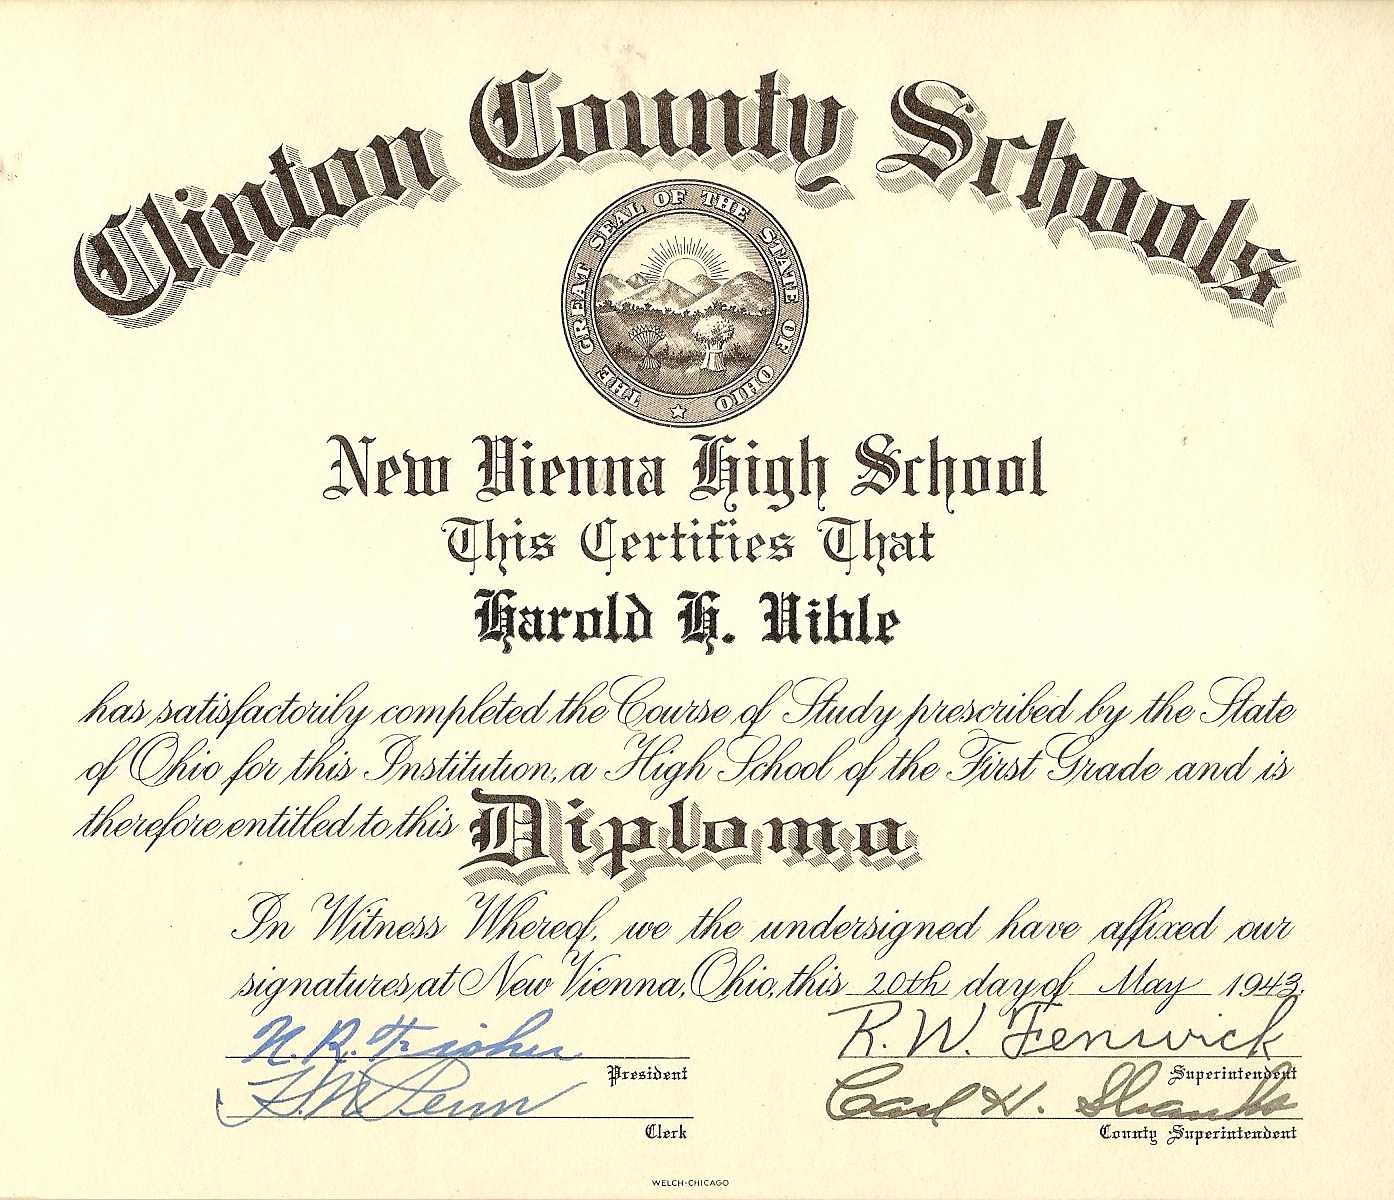 Clinton County Schools
THE GREAT SEAL OF THE STATE OF OHIO
New Vienna High School
This Certifies That
Harold H. Uible
has satisfactorily completed the Course of Study prescribed by the State
of Ohio for this Institution, a High School of the First Grade and is
therefore entitled to this Diploma
In Witness Whereof, we the undersigned have affixed our
signatures at New Vienna, Ohio, this 20th day of May 1943.
N. R. Fisher
President
R. W. Fenwick
Superintendent
Penn
Clerk
Carl H. Shanks
County Superintendent
WELCH-CHICAGO